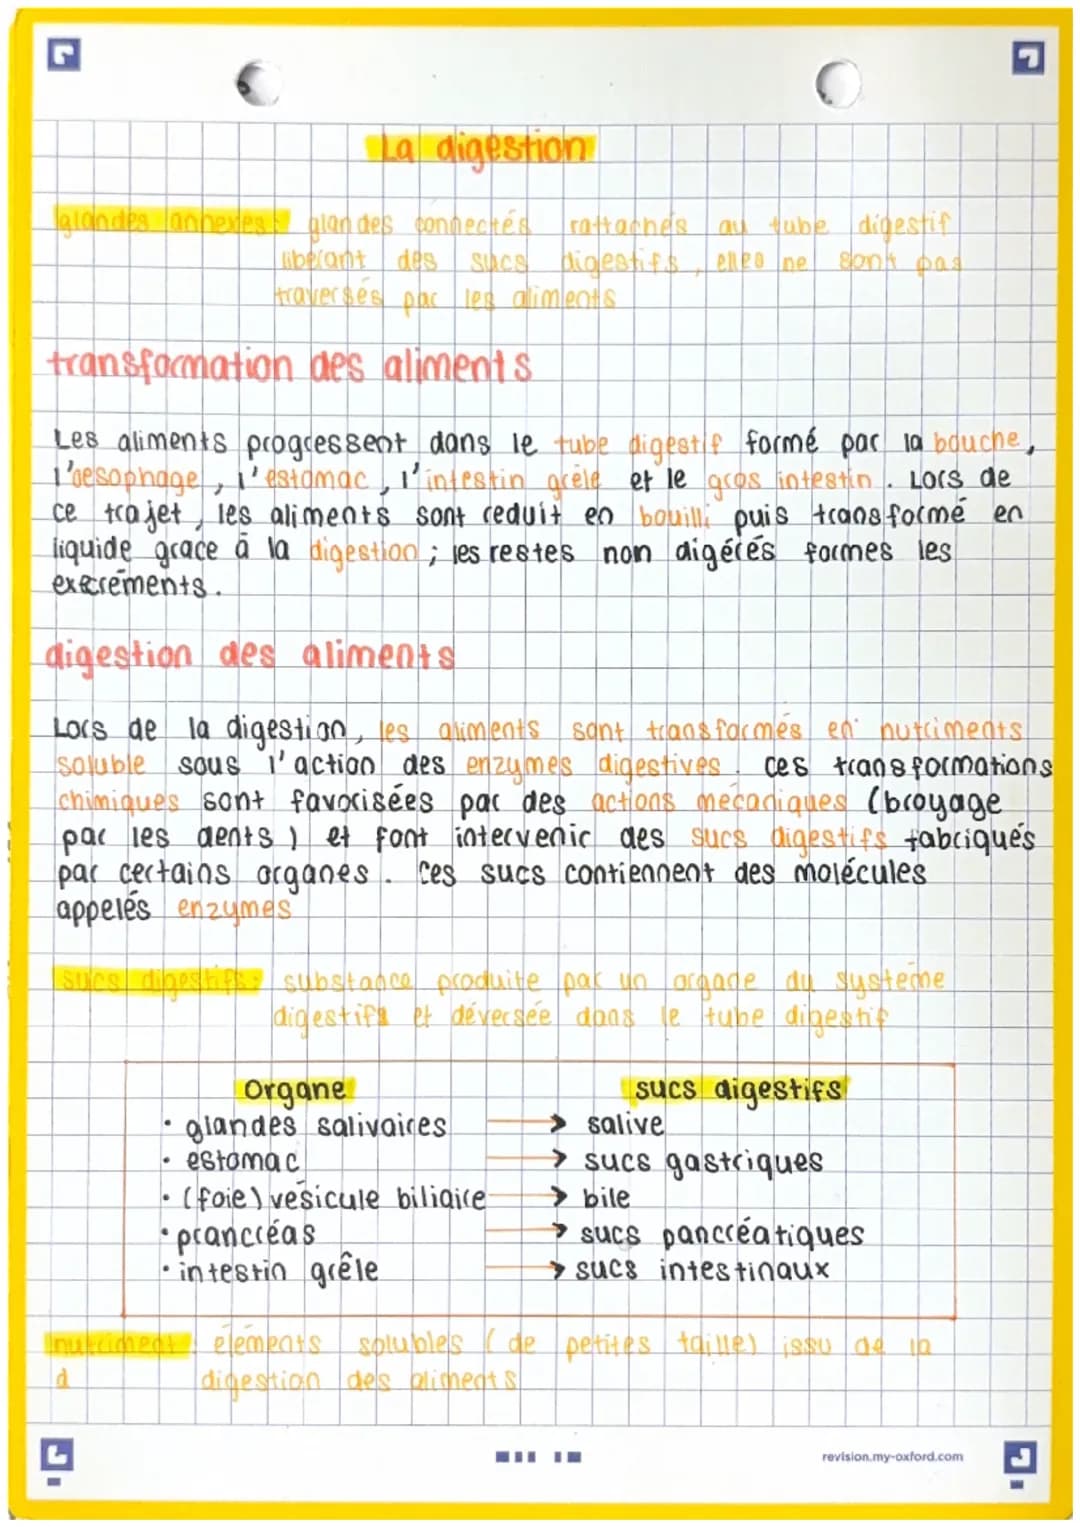 La digestion
glandes annexes: glandes connectés rattachés au tube digestif
libérant des sucs digestifs, elles ne sont pas
traversés par les aliments
transformation des aliments
Les aliments progressent dans le tube digestif formé par la bouche,
l'oesophage, l'estomac, l'intestin grêle et le gros intestin. Lors de
ce trajet, les aliments sont reduit en bouilli puis transformé en
liquide grace à la digestion; les restes non digérés formes les
excréments.
digestion des aliments
Lors de la digestion, les aliments sont transformés en nutriments
soluble sous l'action des enzymes digestives. ces transformations
chimiques sont favorisées par des actions mécaniques (broyage
par les dents) et font intervenir des sucs digestifs fabriqués
par certains organes. Ces sucs contiennent des molécules
appelés enzymes
sucs digestifs: substance produite par un organe du système
digestifs et déversée dans le tube digestif
Organe sucs digestifs
• glandes salivaires → salive
• estomac → sucs gastriques
• (foie) vésicule biliaire → bile
• prancréas → sucs pancréatiques
• intestin grêle → sucs intestinaux
nutriment: éléments solubles (de petites taille) issu de la
d digestion des aliments
revision.my-oxford.com